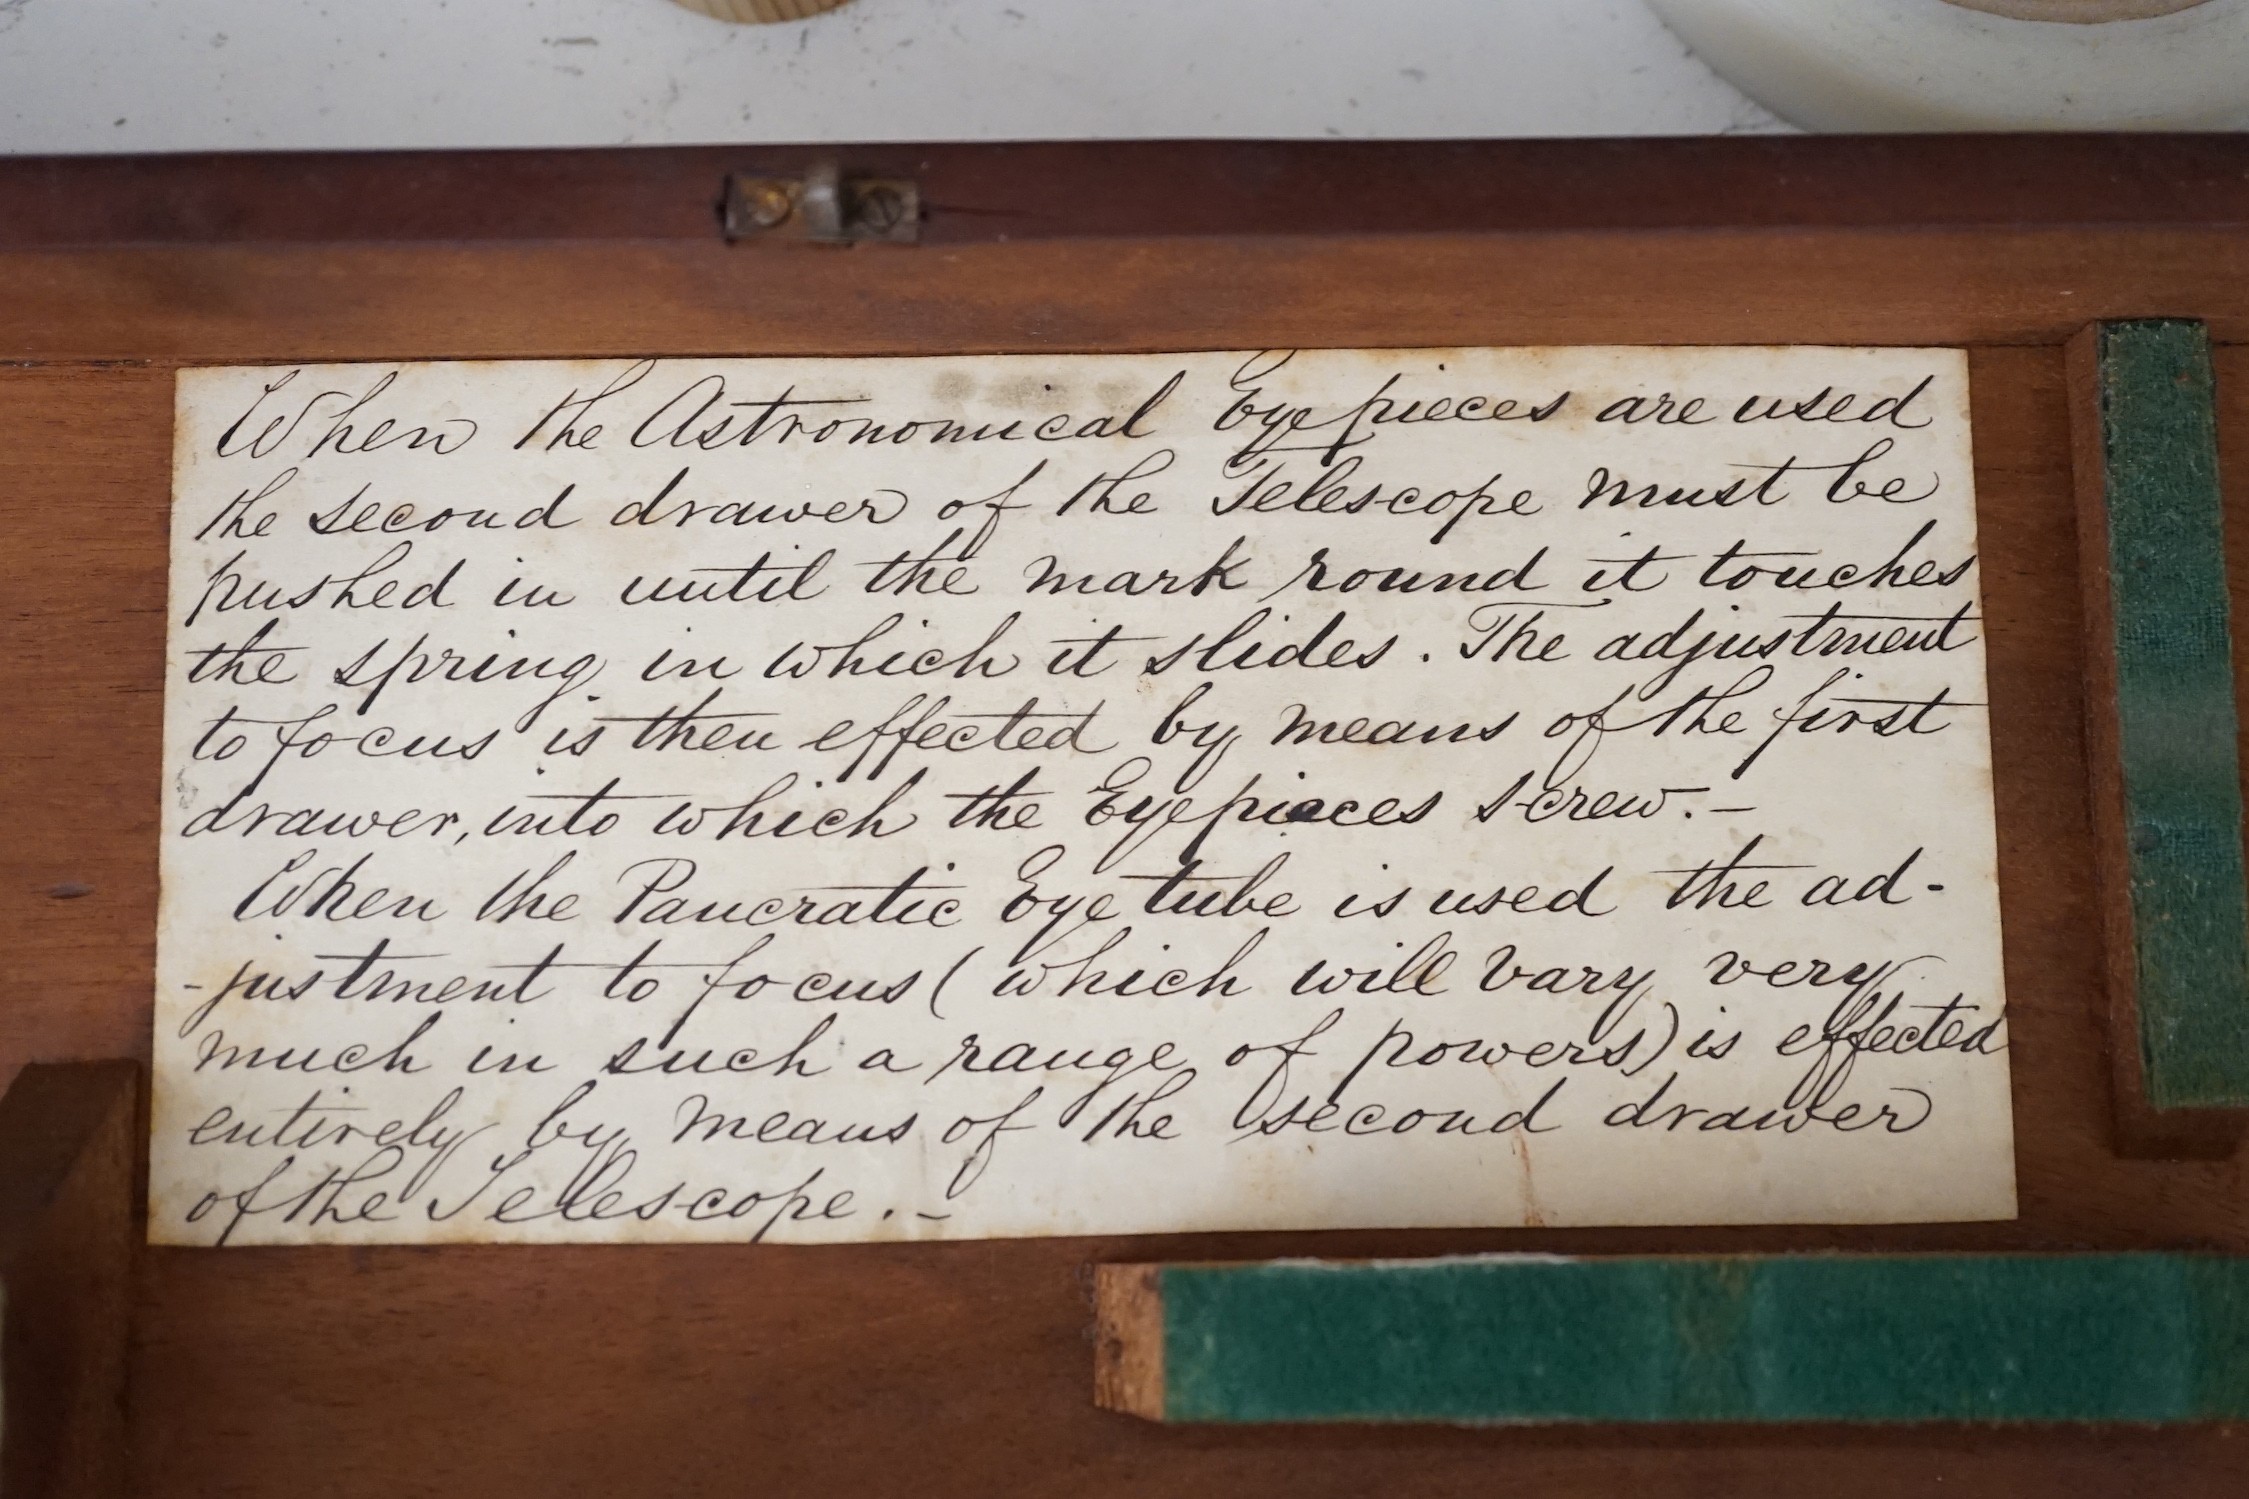 When the Astronomical Eyepieces are used
the second drawer of the Telescope must be
pushed in until the mark round it touches
the spring in which it slides. The adjustment
to focus is then effected by means of the first
drawer, into which the Eyepieces screw.—
When the Pancratic Eyetube is used the ad-
-justment to focus (which will vary very
much in such a range of powers) is effected
entirely by means of the second drawer
of the Telescope.—